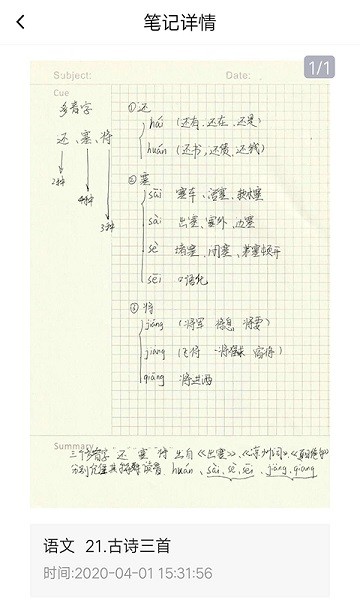 笔记详情
1/1
Subject:
Date:
Cue
多音字
还、塞、将
2种
4种
3种
①还
hái （还有、还在、还是）
huán （还书、还债、还钱）
②塞
sāi 塞车、活塞、
sài 出塞、塞外、边塞
sè 堵塞、闭塞、茅塞顿开
sēi 口语化
③将
jiāng （将军 将息 将要）
jiàng
qiāng 将进酒
Summary
三个多音字“还”“塞”“将”出自《出塞》、《凉州词》、
huán、sài、sè、sēi、jiàng、qiang
语文 21.古诗三首
时间:2020-04-01 15:31:56